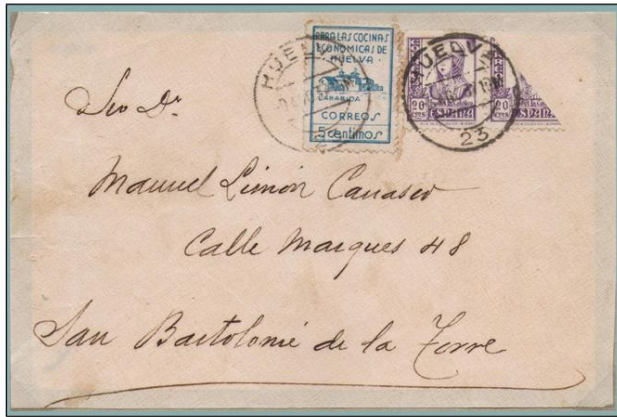 PARA LAS COCINAS
ECONOMICAS DE
HUELVA
LA RABIDA
CORREOS
5 centimos
HUELVA
HUELVA
23
20 20
CTS CTS
ESPAÑA
Sr. Dr.
Manuel Limón Carrasco
Calle Marques 48
San Bartolomé de la Torre